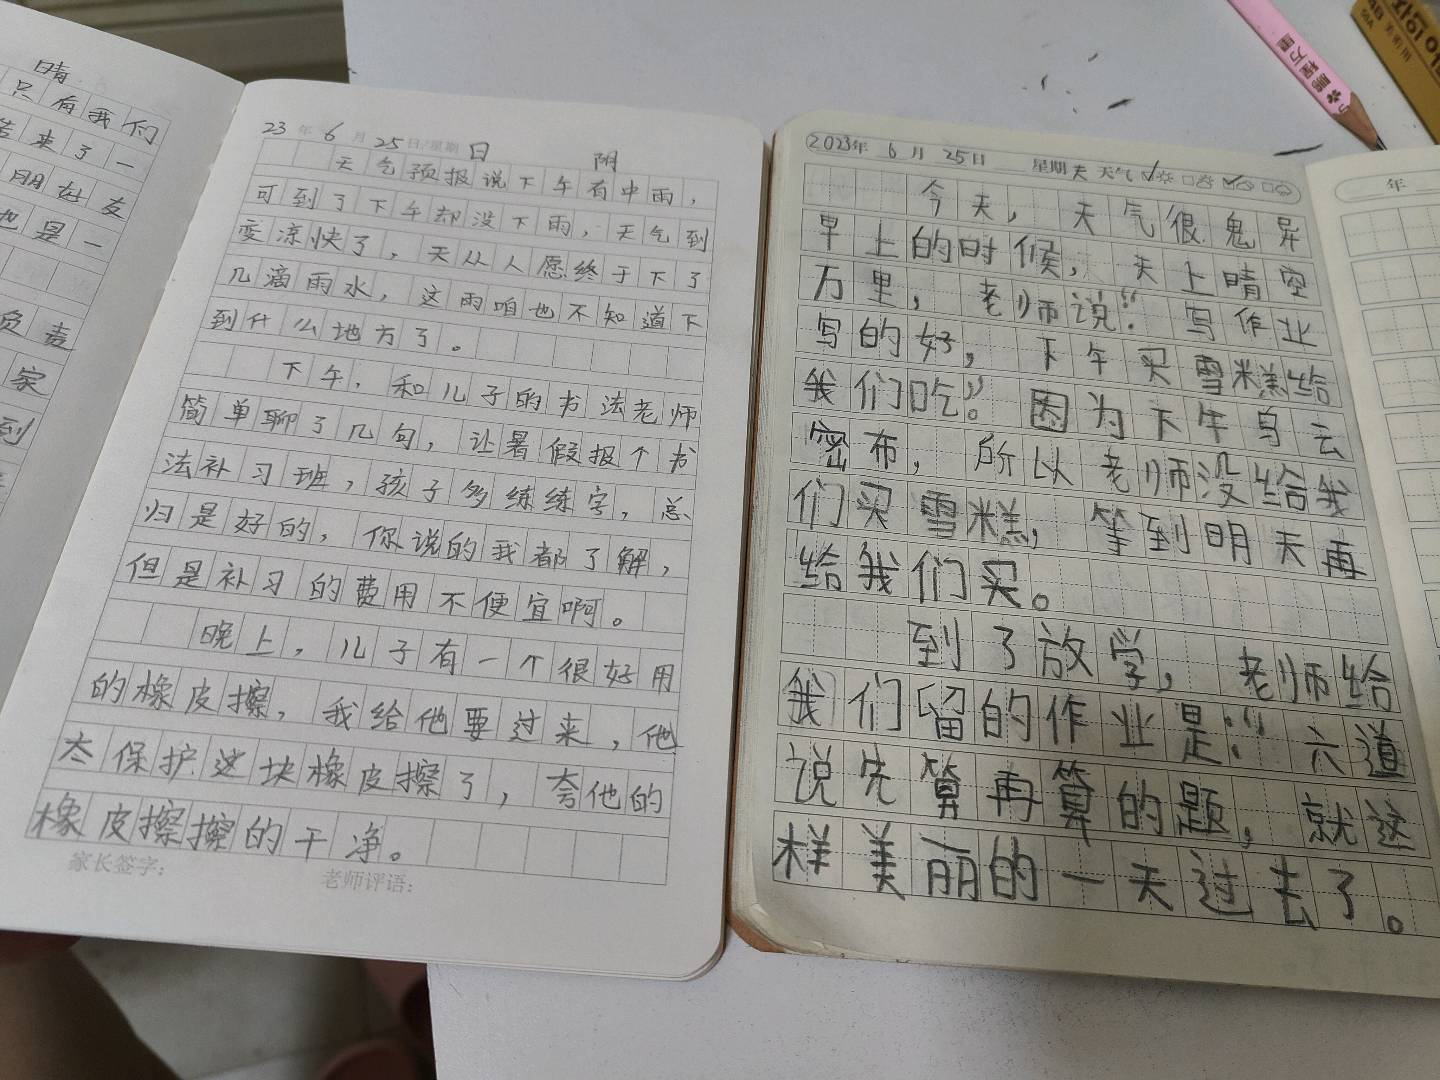 晴
只有我们
来了一
朋好友
也是一
负责
家
到
23年6月25日/星期日 阴
天气预报说下午有中雨，
可到了下午却没下雨，天气到
变凉快了，天从人愿终于下了
几滴雨水，这雨咱也不知道下
到什么地方了。
下午，和儿子的书法老师
简单聊了几句，让暑假报个书
法补习班，孩子多练练字，总
归是好的，你说的我都了解，
但是补习的费用不便宜啊。
晚上，儿子有一个很好用
的橡皮擦，我给他要过来，他
太保护这块橡皮擦了，夸他的
橡皮擦擦的干净。
家长签字：
老师评语：
2023年 6月 25日 星期天 天气
今天，天气很鬼异
早上的时候，天上晴空
万里，老师说：“写作业
写的好，下午买雪糕给
我们吃”。因为下午乌云
密布，所以老师没给我
们买雪糕，等到明天再
给我们买。
到了放学，老师给
我们留的作业是：“六道
说先算再算的题，就这
样美丽的一天过去了。
年